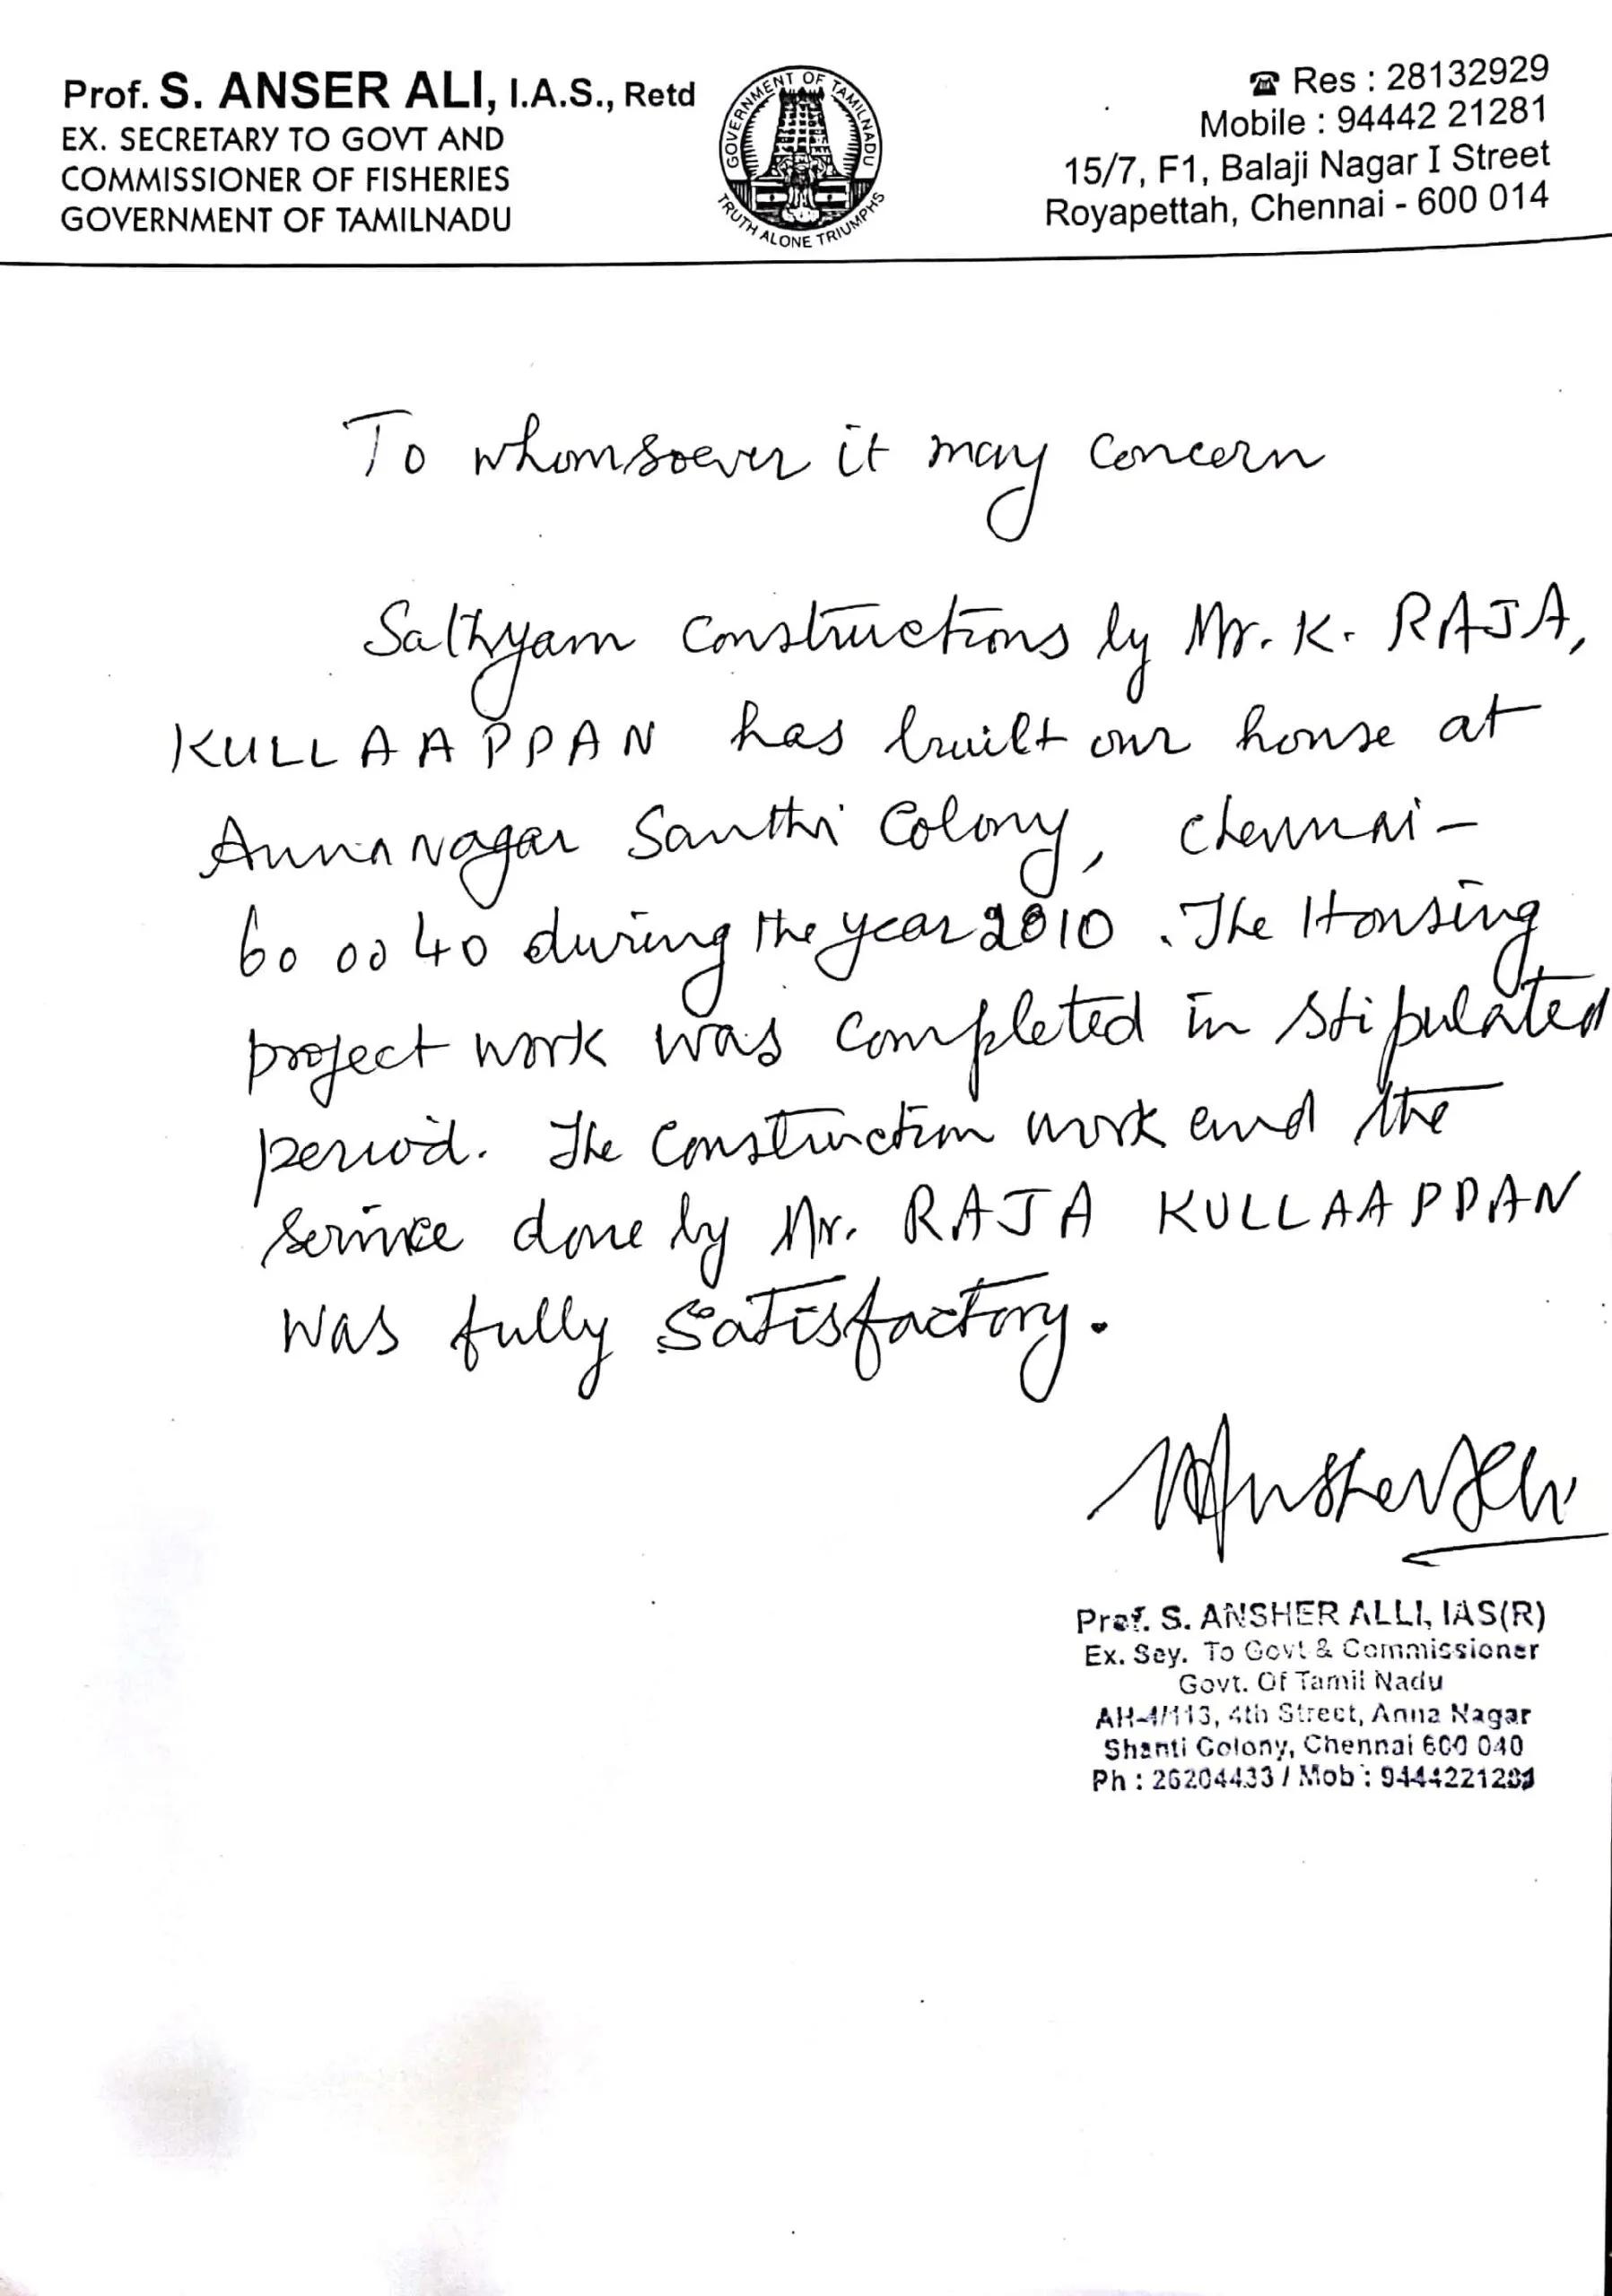 Prof. S. ANSER ALI, I.A.S., Retd
EX. SECRETARY TO GOVT AND
COMMISSIONER OF FISHERIES
GOVERNMENT OF TAMILNADU
GOVERNMENT OF TAMILNADU
TRUTH ALONE TRIUMPHS
☎ Res : 28132929
Mobile : 94442 21281
15/7, F1, Balaji Nagar I Street
Royapettah, Chennai - 600 014
To whomsoever it may concern
Sathyam Constructions by Mr. K. RAJA,
KULLAAPPAN has built our house at
Anna nagar Santhi Colony, Chennai -
60 00 40 during the year 2010. The Housing
project work was completed in stipulated
period. The Construction work and the
service done by Mr. RAJA KULLAAPPAN
was fully satisfactory.
Prof. S. ANSHER ALLI, IAS(R)
Ex. Sey. To Govt & Commissioner
Govt. Of Tamil Nadu
AH-4/113, 4th Street, Anna Nagar
Shanti Colony, Chennai 600 040
Ph : 26204433 / Mob : 9444221281